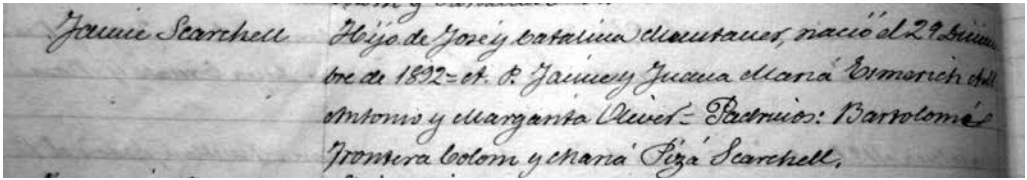 Jaime Scarchell Hijo de José y Catalina Muntaner, nació el 29 Diciem
bre de 1892 = A. P. Jaime y Juana Maria Esmerich A.M.
Antonio y Margarita Oliver = Padrinos: Bartolomé
Frontera Colom y Maria Pizá Scarchell.